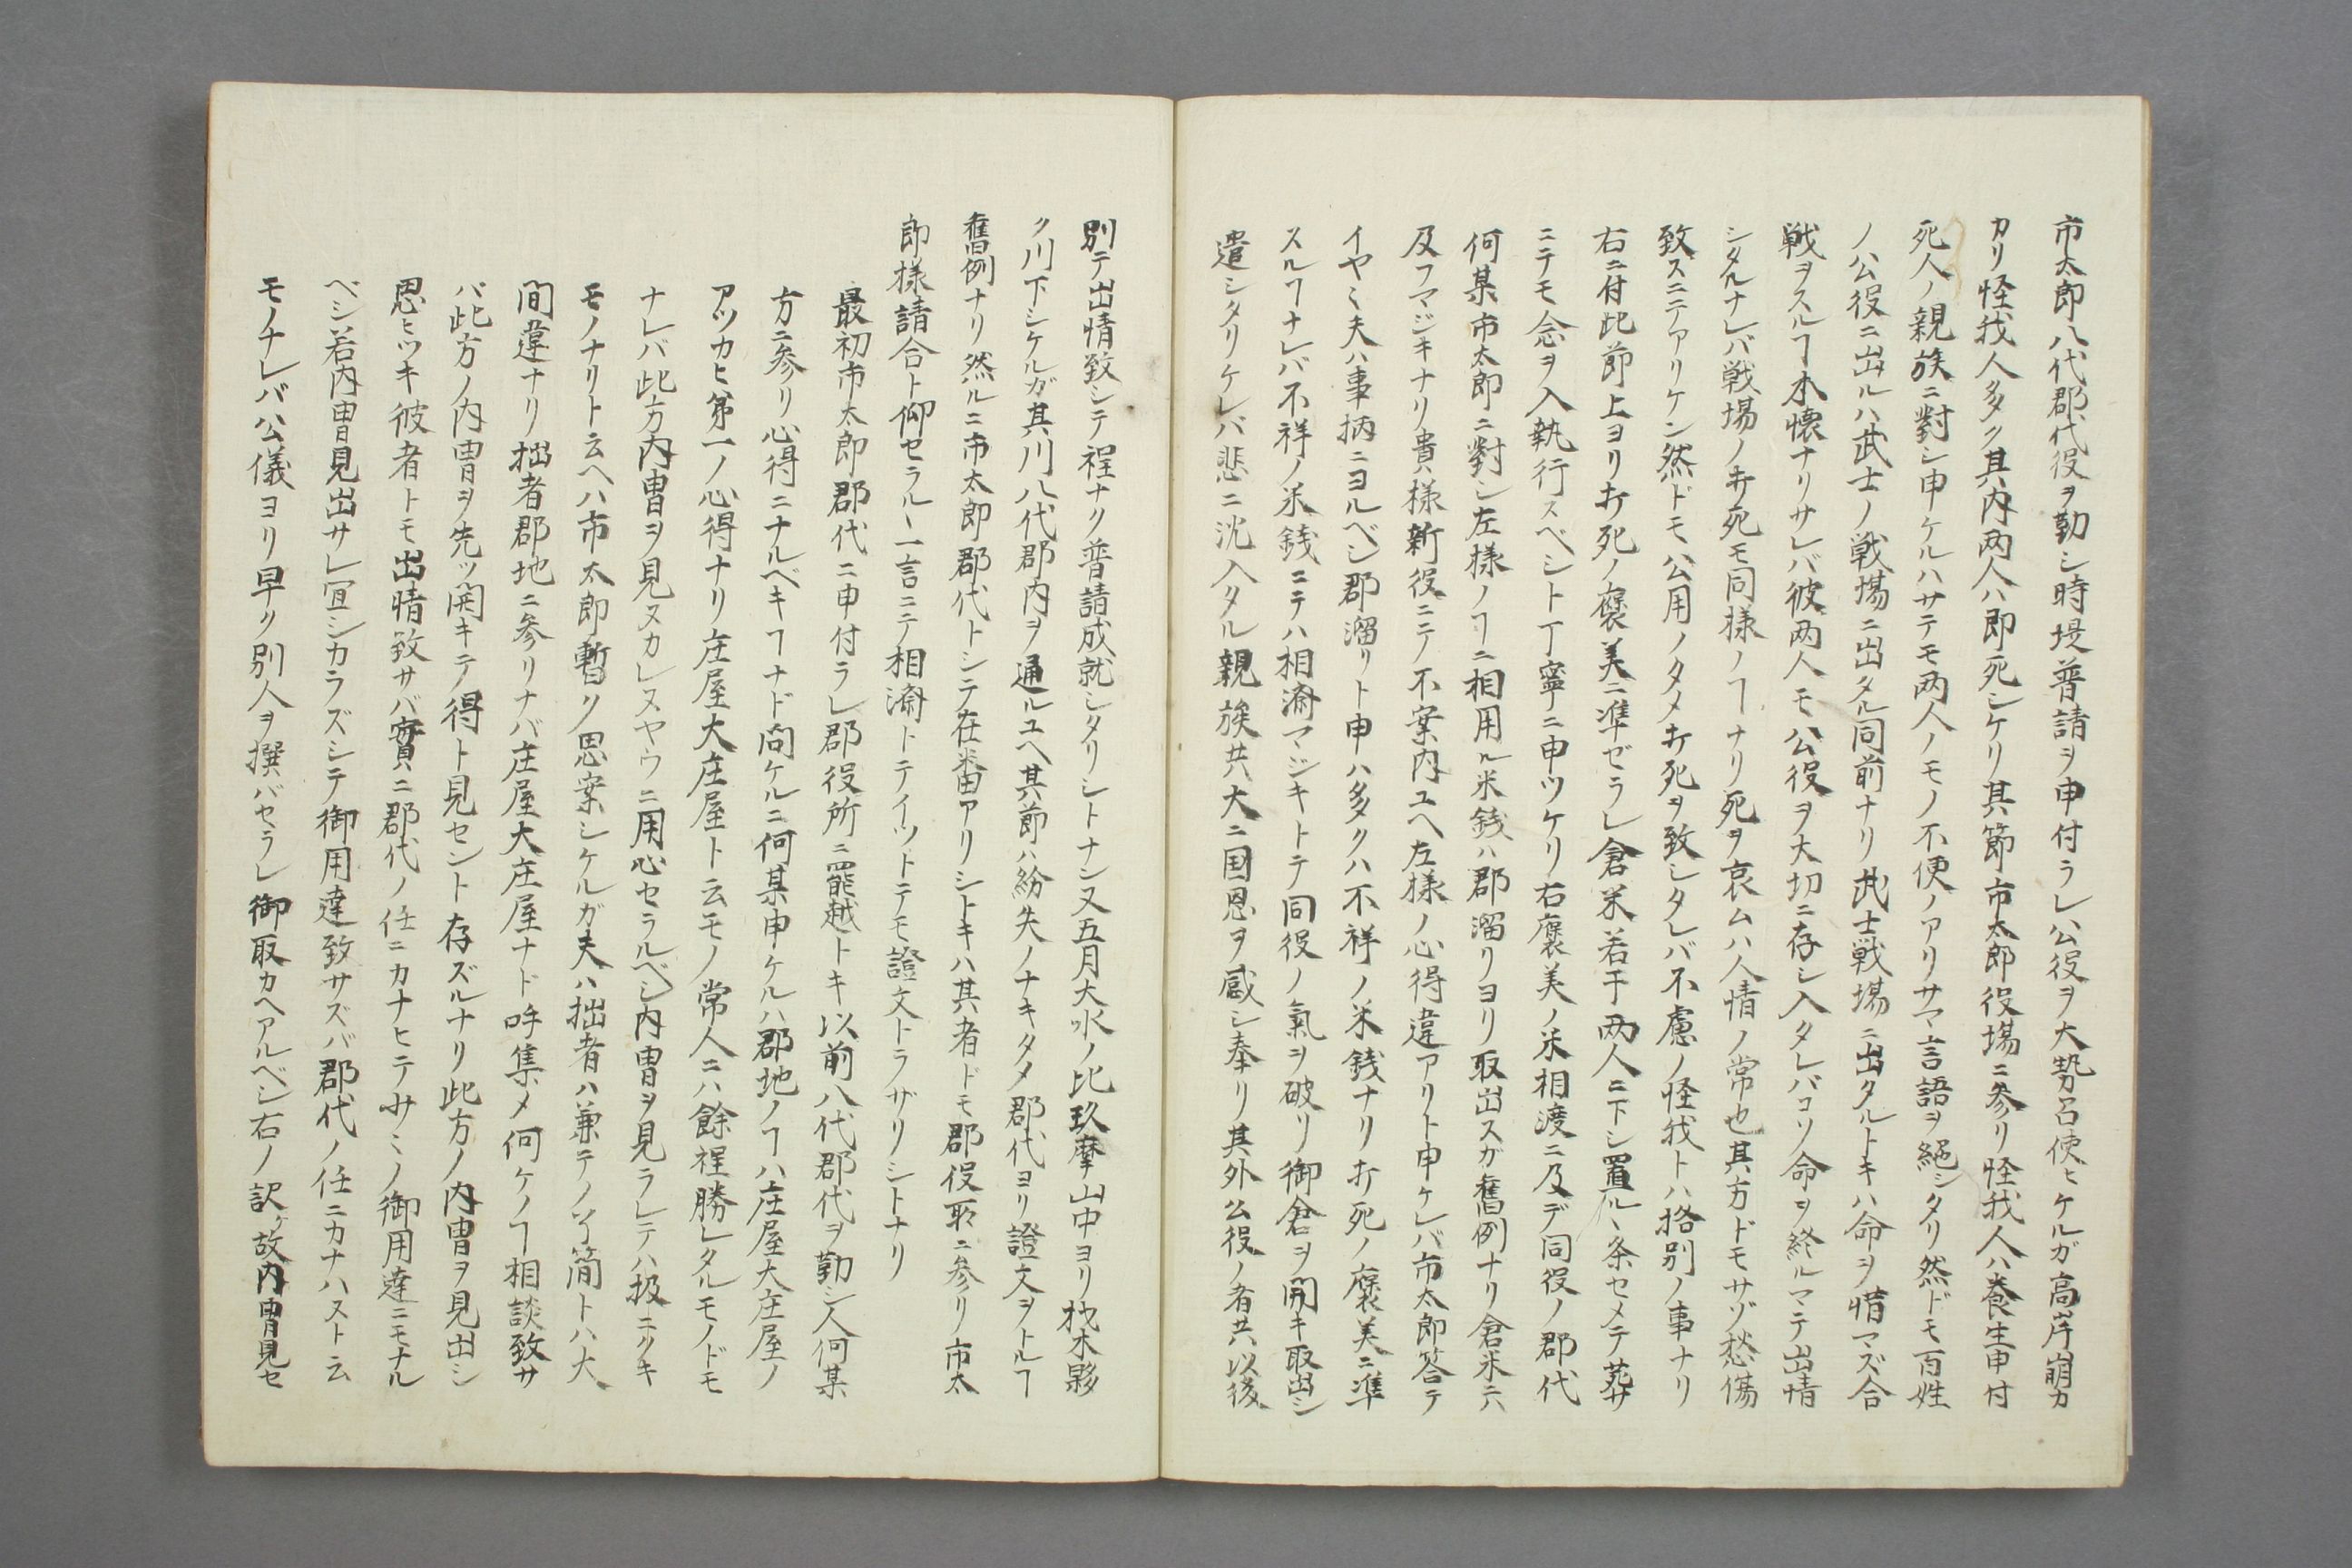 市太郎八代郡代役ヲ勤シ時堤普請ヲ申付ラレ公役ヲ大勢召使ヒケルガ高岸崩カ
カリ怪我人多ク其内両人ハ即死シケリ其節市太郎役場ニ参リ怪我人ハ養生申付
死人ノ親族ニ對シ申ケルハサテモ両人ノモノ不便ノアリサマ言語ヲ絶シタリ然ドモ百姓
ノ公役ニ出ルハ武士ノ戦場ニ出タル同前ナリ武士戦場ニ出タルトキハ命ヲ惜マズ合
戦ヲスルヿ本懐ナリサレバ彼両人モ公役ヲ大切ニ存シ入タレバコソ命ヲ終ルマテ出情
シタルナレバ戦場ノ打死モ同様ノヿナリ死ヲ哀ムハ人情ノ常也其方ドモサゾ愁傷
致スニテアリケン然ドモ公用ノタメ打死ヲ致シタレバ不慮ノ怪我トハ格別ノ事ナリ
右ニ付此節上ヨリ打死ノ褒美ニ準ゼラレ倉米若干両人ニ下シ置ルヽ条セメテ葬サ
ニテモ念ヲ入執行スベシト丁寧ニ申ツケリ右褒美ノ米相渡ニ及デ同役ノ郡代
何某市太郎ニ對シ左様ノヿニ相用ル米銭ハ郡溜リヨリ取出スガ舊例ナリ倉米ニハ
及フマジキナリ貴様新役ニテノ不案内ユヘ左様ノ心得違アリト申ケレバ市太郎答テ
イヤヽ夫ハ事柄ニヨルベシ郡溜リト申ハ多クハ不祥ノ米銭ナリ打死ノ褒美ニ準
スルヿナレバ不祥ノ米銭ニテハ相濟マジキトテ同役ノ氣ヲ破リ御倉ヲ開キ取出シ
遣シタリケレバ悲ニ沈入タル親族共大ニ国恩ヲ感シ奉リ其外公役ノ者共以後
別テ出情致シテ程ナク普請成就シタリシトナン又五月大水ノ比玖摩山中ヨリ材木夥
ク川下シケルガ其川八代郡内ヲ通ルユヘ其節ハ紛失ノナキタメ郡代ヨリ證文ヲトルヿ
舊例ナリ然ルニ市太郎郡代トシテ在番アリシトキハ其者ドモ郡役所ニ参リ市太
郎様請合ト仰セラルヽ一言ニテ相濟トテイツトテモ證文トラザリシトナリ
最初市太郎郡代ニ申付ラレ郡役所ニ罷越トキ以前八代郡代ヲ勤シ人何某
方ニ参リ心得ニナルベキヿナド問ケルニ何某申ケルハ郡地ノヿハ庄屋大庄屋ノ
アツカヒ第一ノ心得ナリ庄屋大庄屋ト云モノ常人ニハ餘程勝レタルモノドモ
ナレバ此方内冑ヲ見ヌカレヌヤウニ用心セラルベシ内冑ヲ見ラレテハ扱ニクキ
モノナリト云ヘハ市太郎暫ク思案シケルガ夫ハ拙者ハ兼テノ了簡トハ大
間違ナリ拙者郡地ニ参リナバ庄屋大庄屋ナド呼集メ何ケノヿ相談致サ
バ此方ノ内冑ヲ先ツ開キテ得ト見セント存ズルナリ此方ノ内冑ヲ見出シ
思ヒツキ彼者トモ出情致サバ實ニ郡代ノ任ニカナヒテサミノ御用達ニモナル
ベシ若内冑見出サレ宜シカラズシテ御用達致サズバ郡代ノ任ニカナハスト云
モノナレバ公儀ヨリ早ク別人ヲ撰バセラレ御取カヘアルベシ右ノ訳故内冑見セ